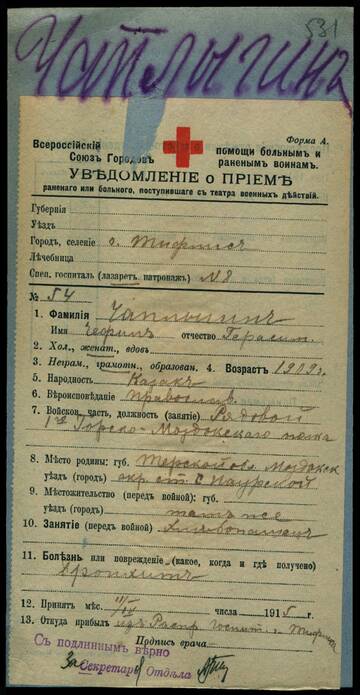 531
Чаплыгинъ
Форма А.
Всероссійскій Союзъ Городовъ помощи больнымъ и раненымъ воинамъ.
УВѢДОМЛЕНІЕ о ПРІЕМѢ
раненаго или больного, поступившаго съ театра военныхъ дѣйствій.
Губернія
Уѣздъ
Городъ, селеніе г. Тифлисъ
Лѣчебница
Спец. госпиталь (лазаретъ, патронажъ) №8
№ 54
1. Фамилія Чаплыгинъ
Имя отчество Герасим.
2. Хол., женат., вдовъ
3. Неграм., грамотн., образован. 4. Возрастъ 1909 г.
5. Народность Казакъ
6. Вѣроисповѣданіе Православ.
7. Войсков. часть, должность (занятіе) Рядовой
1го Горско-Моздокскаго полка
8. Мѣсто родины: губ. Терской об. Моздокск
уѣздъ (городъ) окр. ст. Наурской
9. Мѣстожительство (передъ войной): губ.
уѣздъ (городъ) тамъ же
10. Занятіе (передъ войной) Хлѣбопашецъ
11. Болѣзнь или поврежденіе (какое, когда и гдѣ получено)
Бронхитъ
12. Принятъ мѣс. числа 1915 г.
13. Откуда прибылъ изъ Распр. Госпит. г. Тифлиса
Подпись врача
Съ подлиннымъ вѣрно
За Секретаря Отдѣла